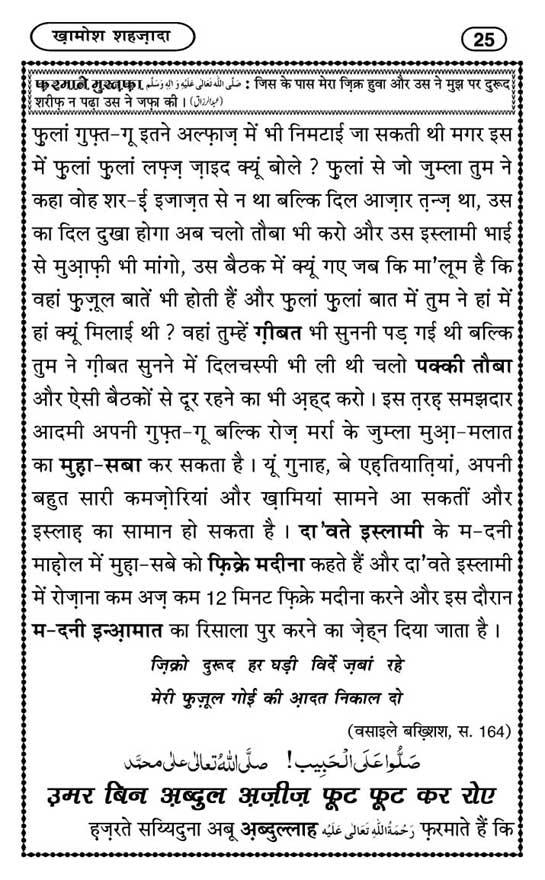 ख़ामोश शहज़ादा
25
फ़रमाने मुस्तफ़ा صَلَّى اللهُ تَعَالٰى عَلَيْهِ وَاٰلِهٖ وَسَلَّم : जिस के पास मेरा ज़िक्र हुवा और उस ने मुझ पर दुरूद
शरीफ़ न पढ़ा उस ने जफ़ा की । (عبدالرزاق)
फुलां गुफ़्त-गू इतने अल्फ़ाज़ में भी निमटाई जा सकती थी मगर इस
में फुलां फुलां लफ़्ज़ ज़ाइद क्यूं बोले ? फुलां से जो जुम्ला तुम ने
कहा वोह शर-ई इजाज़त से न था बल्कि दिल आज़ार त़न्ज़ था, उस
का दिल दुखा होगा अब चलो तौबा भी करो और उस इस्लामी भाई
से मुआ़फ़ी भी मांगो, उस बैठक में क्यूं गए जब कि मा'लूम है कि
वहां फुज़ूल बातें भी होती हैं और फुलां फुलां बात में तुम ने हां में
हां क्यूं मिलाई थी ? वहां तुम्हें ग़ीबत भी सुननी पड़ गई थी बल्कि
तुम ने ग़ीबत सुनने में दिलचस्पी भी ली थी चलो पक्की तौबा
और ऐसी बैठकों से दूर रहने का भी अ़ह्द करो । इस त़रह़ समझदार
आदमी अपनी गुफ़्त-गू बल्कि रोज़ मर्रा के जुम्ला मुआ़-मलात
का मुह़ा-सबा कर सकता है । यूं गुनाह, बे एह़तियात़ियां, अपनी
बहुत सारी कमज़ोरियां और ख़ामियां सामने आ सकतीं और
इस्लाह़ का सामान हो सकता है । दा'वते इस्लामी के म-दनी
माह़ोल में मुह़ा-सबे को फ़िक्रे मदीना कहते हैं और दा'वते इस्लामी
में रोज़ाना कम अज़ कम 12 मिनट फ़िक्रे मदीना करने और इस दौरान
म-दनी इन्आ़मात का रिसाला पुर करने का ज़ेह्न दिया जाता है ।
ज़िक्रो दुरूद हर घड़ी विर्दे ज़बां रहे
मेरी फुज़ूल गोई की आ़दत निकाल दो
(वसाइले बख़्शिश, स. 164)
صَلُّوْا عَلَى الْحَبِيْب! صلَّى اللهُ تَعَالٰى عَلٰى محمَّد
उ़मर बिन अ़ब्दुल अ़ज़ीज़ फूट फूट कर रोए
ह़ज़रते सय्यिदुना अबू अ़ब्दुल्लाह رَحْمَةُ اللهِ تَعَالٰى عَلَيْهِ फ़रमाते हैं कि